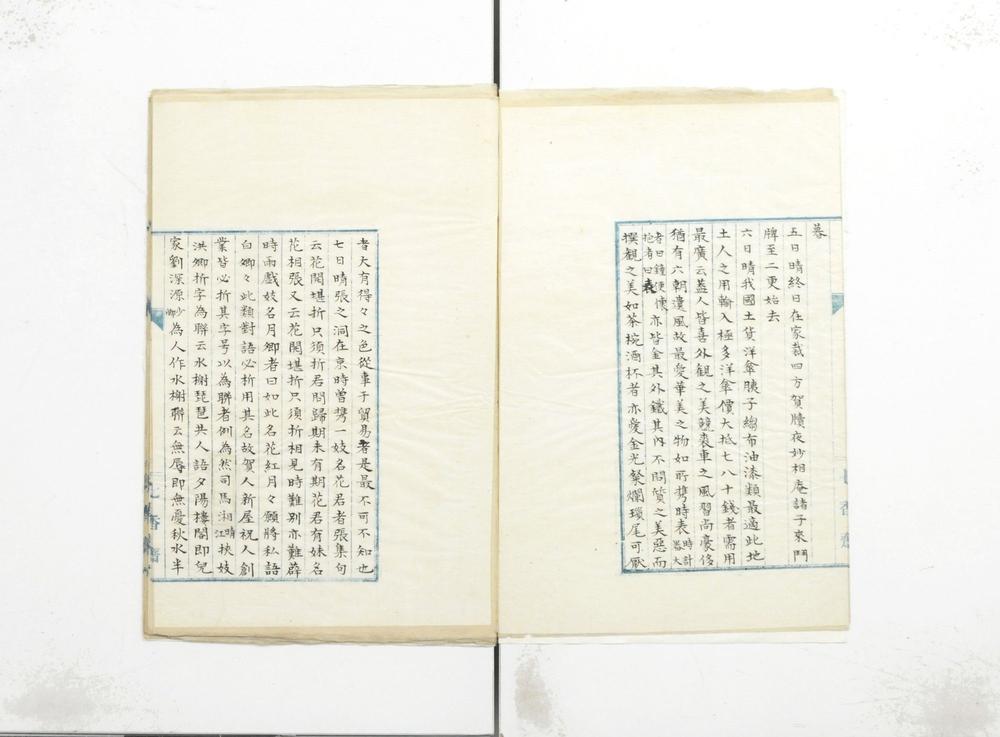 暮
五日晴終日在家裁四方賀牘夜妙相庵諸子來鬥
牌至二更始去
六日晴我國土貨洋傘胰子綿布油漆類最適此地
土人之用輸入極多洋傘價大抵七八十錢者需用
最廣云蓋人皆喜外觀之美競裘車之風習尚豪侈
猶有六朝遺風故最愛華美之物如所携時表時計
器大
者曰鐘便懷
抱者曰表亦皆金其外鐵其內不問質之美惡而
撰觀之美如茶椀酒杯者亦愛金光燦爛瑣尾可厭
者大有得々之色從事于貿易者是最不可不知也
七日晴張之洞在京時曾携一妓名花君者張集句
云花開堪折只須折君問歸期未有期花君有妹名
花相張又云花開堪折只須折相見時難別亦難薜
時雨戲妓名月卿者曰如此名花紅月々願將私語
白卿々此類對語必折用其名故賀人新屋祝人創
業皆必折其字号以為聯者例為然司馬湘晴江挾妓
洪卿折字為聯云水榭琵琶共人語夕陽樓閣即兒
家劉深源妙卿為人作水榭聯云無辱即無憂秋水半